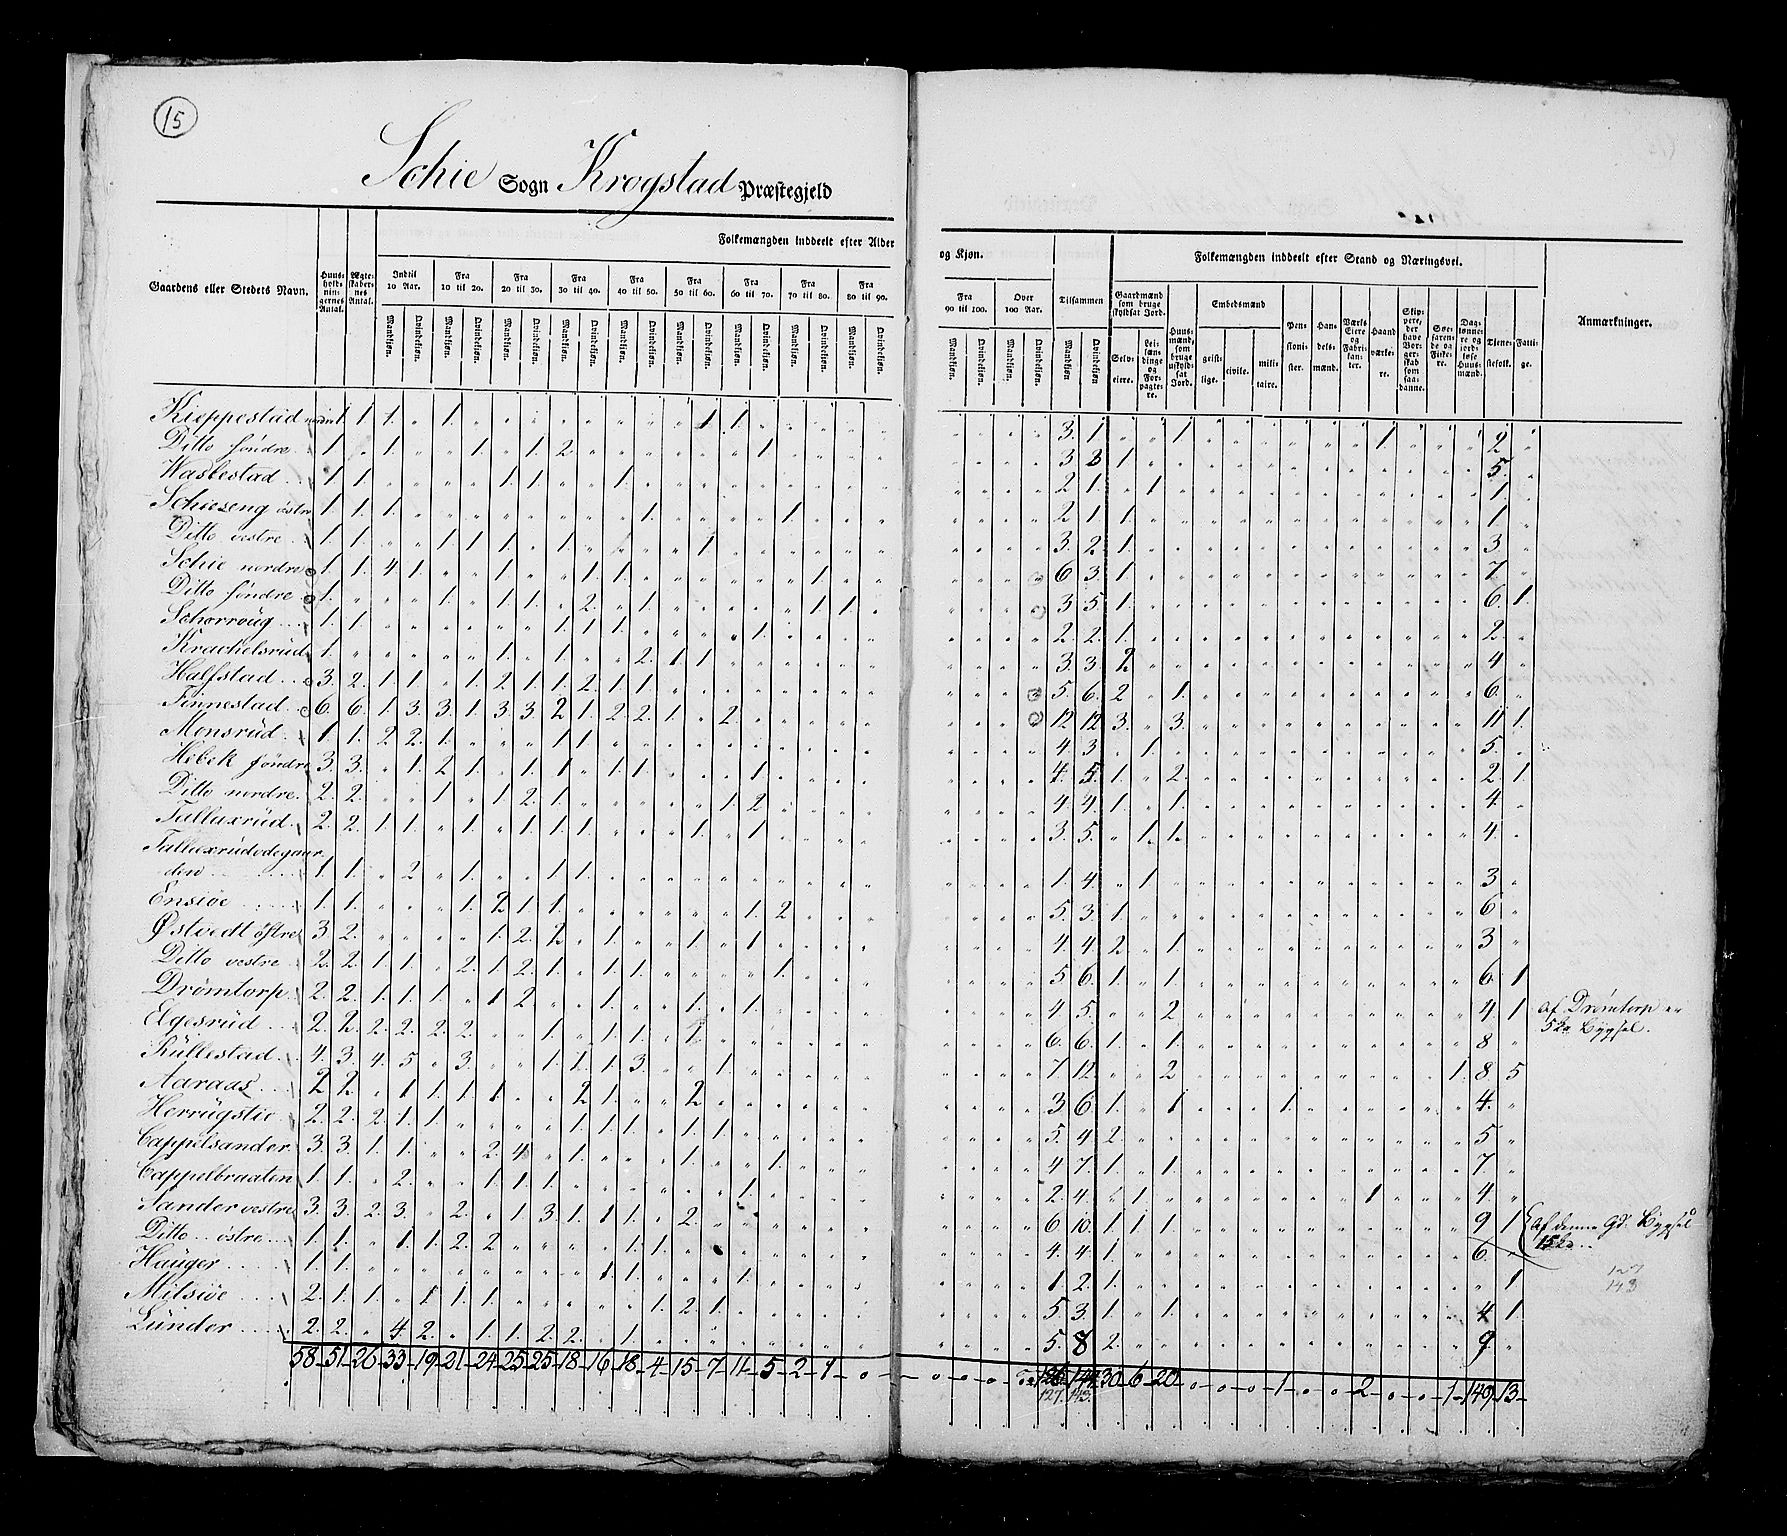 15
Schie Sogn Krogstad Præstegjeld
Gaardens eller Stedets Navn.
Huus-holdnin-gernes Antal.
Ægte-skaber-nes Antal.
Folkemængden inddeelt efter Alder og Kjøn.
Indtil 10 Aar.
Fra 10 til 20.
Fra 20 til 30.
Fra 30 til 40.
Fra 40 til 50.
Fra 50 til 60.
Fra 60 til 70.
Fra 70 til 80.
Fra 80 til 90.
Fra 90 til 100.
Over 100 Aar.
Tilsammen
Mandkiøn. Qvindekiøn.
Folkemængden inddeelt efter Stand og Næringsvei.
Gaardmænd som bruge skyldsat Jord.
Selv-eiere.
Lei-lændinge og For-pagte-re.
Huus-mænd, som bruge uskyld-sat Jord.
Embedsmænd
geist-lige.
civile.
mili-taire.
Pen-sioni-ster.
Han-dels-mænd.
Værks Eiere og Fabri-kan-ter.
Haand værke-re.
Skip-pere, der have Bor-ger-skab som saa-danne.
Søe-farende og Fiske-re.
Dag-lønne-re og jord-løse Huus-mænd.
Tjene-stefolk.
Fatti-ge.
Anmærkninger.
Kieppestad nordre 1. 1. 1. 1. 1 1. 3. 1. 1 1 2
Ditto søndre 1. 1. 1. 1. 2. 1. 3 3 1. 5.
Wastestad 1. 1. 1 1. 1. 2. 1. 1 1.
Schieseng østre 1. 1. 1. 1. 1. 2 1. 1. 1.
Ditto vestre 1. 1. 1 1. 1. 1. 1. 3. 2. 1. 3
Schie nordre 1. 1. 4 1. 1. 1. 1. 1. 6 3. 1. 7
Ditto søndre 1. 1. 1. 1. 2. 1. 1 1. 3. 5. 1. 6. 1.
Schorroug 1. 1. 1. 1. 1. 1. 2. 2. 1. 2.
Krachelsrüd 1. 1. 1. 2. 1 1. 3. 3. 2 4
Halfstad 3. 2. 1. 1. 1. 2 1. 1. 2. 1. 1. 5. 6. 2 1. 6.
Tinnestad 6. 6. 1. 3. 3. 1. 3. 3. 2 1. 2. 2. 1. 2. 12 12 3. 3. 11 1.
Monsrüd 1. 1. 2 2. 1. 1 1. 4. 3 1. 5.
Hebek søndre 3. 3. 1. 2 1. 1. 1. 1. 1. 1. 4. 5. 1. 2. 2. 1
Ditto nordre 2. 2. 1 1. 2. 1. 1. 2. 4. 4. 1. 1. 4.
Tallaxrüd 2. 2. 1. 1. 1. 1. 1. 1. 1. 1. 3. 5. 1. 1. 4.
Tallaxrüdødegaar
den 1. 1. 2. 1. 1. 1. 1. 4. 1. 3
Ensiøe 1. 1. 1. 2 1. 1. 1. 2. 5. 3. 1. 6
Østvedt østre 3 2. 1. 2. 2. 1. 1. 1. 4. 4. 2. 1. 3
Ditto vestre 2. 2. 1. 1. 2. 1. 2. 1. 1. 1. 5 6. 1. 1. 6. 1
Drømtorp 2. 2. 1. 1. 1. 1 2. 1. 1. 1. 4 5. 2 4 1 af Drømtorp er
Elgesrüd 2. 2. 2. 2. 2 2. 1. 1. 1. 6. 6. 1. 1. 8
Küllestad 4. 3. 4. 5 3. 1. 1. 1. 3. 1. 7 12. 2 1. 8. 5
Aaraas 2 2. 1 1. 1. 1 2 1. 2 3. 6. 1. 1 1. 4.
Herrügstie 2. 2. 2. 1. 1 1. 1. 1. 1. 1. 5. 4. 2. 5
Cappelsander 3. 3. 1. 1. 2. 4. 1. 1. 1. 4 7. 1. 1. 7
Cappelbraaten 1. 1. 2. 1. 1 1. 1. 2. 4. 1 1 4.
Sander vestre 3. 3. 2. 3. 2. 1 3. 1. 1 1. 2. 6 10. 1 1 1. 9 1 af denne Gd. Bygsel
Ditto østre 1. 1. 1 1. 2. 2 1. 1. 4. 4. 1. 6.
Hauger 1. 1. 1 1. 1. 1. 2. 1. 1 127
143
Milsiøe 2. 1. 1. 1 1. 1. 1. 2. 1. 5. 3. 1. 1. 4 1.
Lünder 2. 2. 4. 2. 1. 1. 2. 2. 1. 5. 8 2. 9.
58 51 26 33 19 21 24 25 25 18 16 18 4 15 7 11 5 2 1 0 126 144 30 6 20 0 0 0 1 0 0 2 0 0 1 149 13
127. 143.